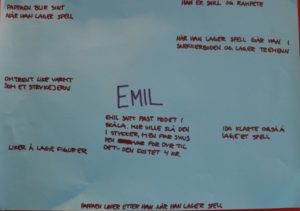 PAPPAEN BLIR SINT
NÅR HAN LAGER SPELL
HAN ER SKILL OG RAMPETE
NÅR HAN LAGER SPELL GÅR HAN I
SNEKKERBODEN OG LAGER TREMENN
OMTRENT LIKE VARMT
SOM ET STRYKEJERN
EMIL
EMIL SATT FAST HODET I
SKÅLA. MOR VILLE SLÅ DEN
I STYKKER, MEN FAR SYNS
DEN VAR FOR DYR TIL
DET- DEN KOSTET 4 KR.
IDA KLARTE OGSÅ Å
LAGE ET SPELL
LIKER Å LAGE FIGURER
PAPPAEN LØPER ETTER HAN NÅR HAN LAGER SPELL